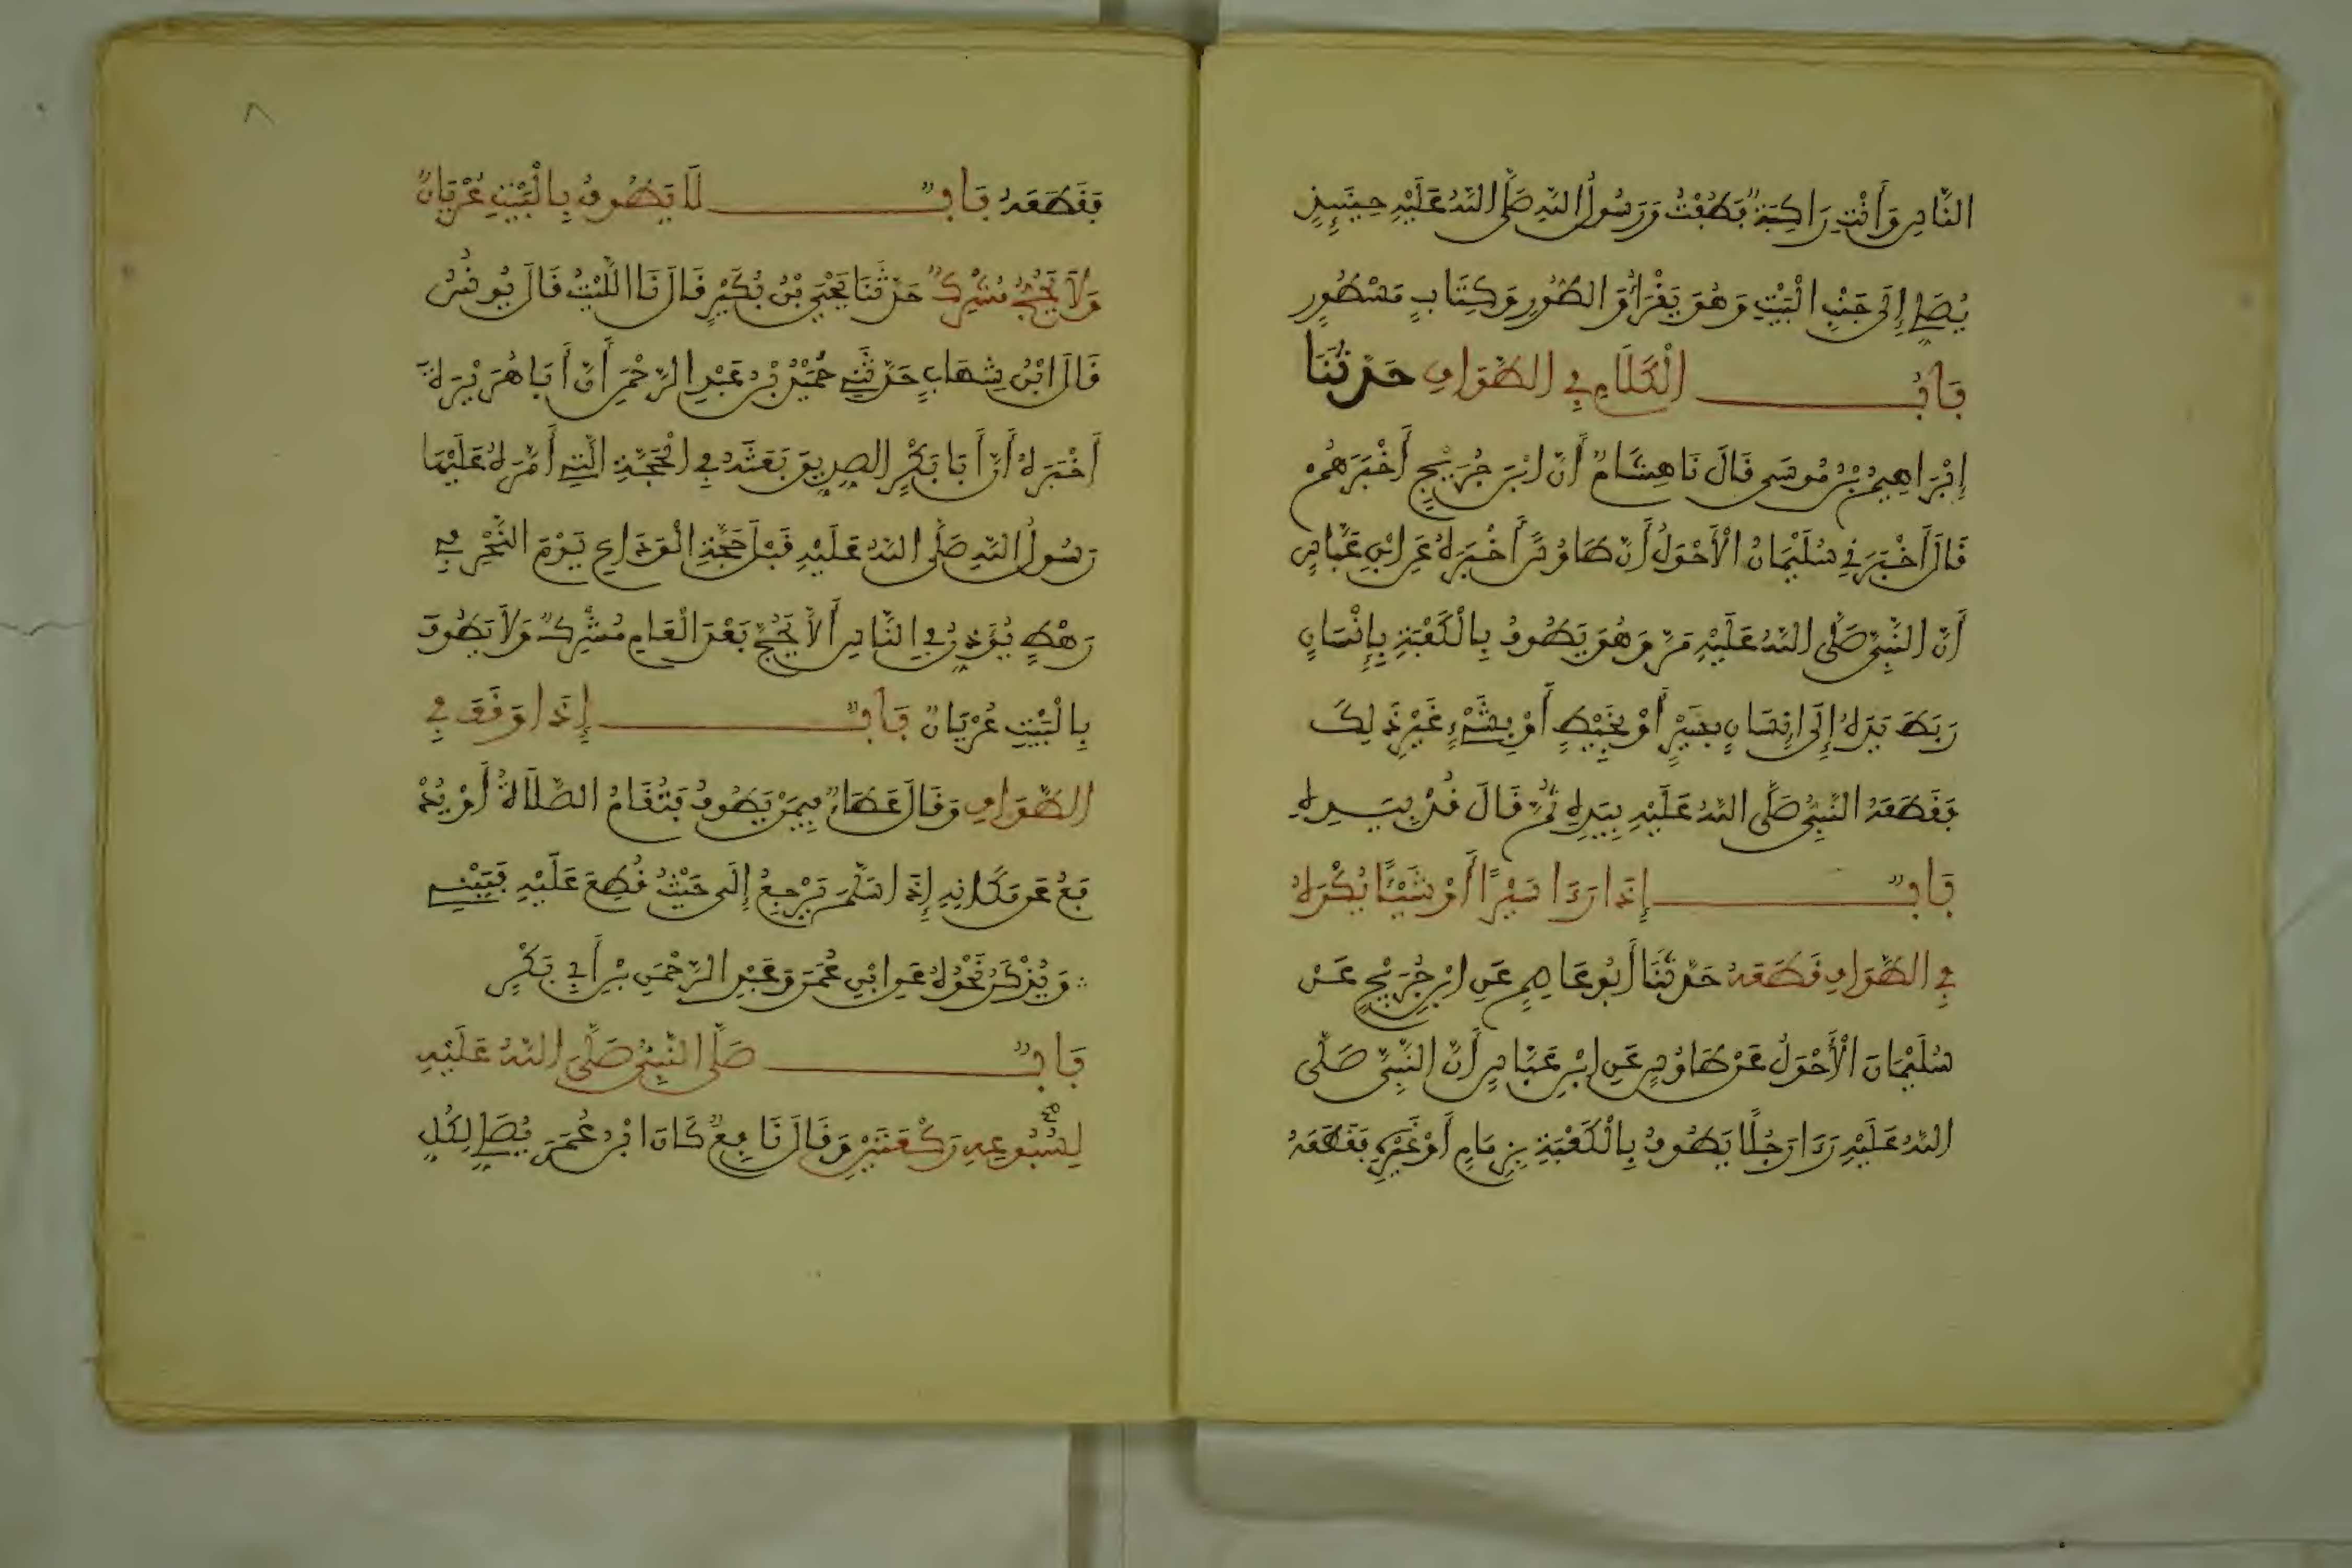 النَّاسِ وَأَنْتِ رَاكِبَةٌ فَطُفْتُ وَرَسُولُ اللَّهِ صَلَّى اللَّهُ عَلَيْهِ حِينَئِذٍ
يُصَلِّي إِلَى جَنْبِ الْبَيْتِ وَهُوَ يَقْرَأُ وَالطُّورِ وَكِتَابٍ مَسْطُورٍ
بَابُ الْكَلَامِ فِي الطَّوَافِ حَدَّثَنَا
إِبْرَاهِيمُ بْنُ مُوسَى قَالَ نَا هِشَامٌ أَنَّ ابْنَ جُرَيْجٍ أَخْبَرَهُمْ
قَالَ أَخْبَرَنِي سُلَيْمَانُ الْأَحْوَلُ أَنَّ طَاوُسًا أَخْبَرَهُ عَنِ ابْنِ عَبَّاسٍ
أَنَّ النَّبِيَّ صَلَّى اللَّهُ عَلَيْهِ مَرَّ وَهُوَ يَطُوفُ بِالْكَعْبَةِ بِإِنْسَانٍ
رَبَطَ يَدَهُ إِلَى إِنْسَانٍ بِسَيْرٍ أَوْ بِخَيْطٍ أَوْ بِشَيْءٍ غَيْرِ ذَلِكَ
فَقَطَعَهُ النَّبِيُّ صَلَّى اللَّهُ عَلَيْهِ بِيَدِهِ ثُمَّ قَالَ قُدْ بِيَدِهِ
بَابٌ إِذَا رَءَا سَيْرًا أَوْ شَيْئًا يُكْرَهُ
فِي الطَّوَافِ قَطَعَهُ حَدَّثَنَا أَبُو عَاصِمٍ عَنِ ابْنِ جُرَيْجٍ عَنْ
سُلَيْمَانَ الْأَحْوَلِ عَنْ طَاوُسٍ عَنِ ابْنِ عَبَّاسٍ أَنَّ النَّبِيَّ صَلَّى
اللَّهُ عَلَيْهِ رَءَا رَجُلًا يَطُوفُ بِالْكَعْبَةِ بِزِمَامٍ أَوْ غَيْرِهِ فَقَطَعَهُ
٨
فَقَطَعَهُ بَابٌ لَا يَطُوفُ بِالْبَيْتِ عُرْيَانٌ
وَلَا يَحُجُّ مُشْرِكٌ حَدَّثَنَا يَحْيَى بْنُ بُكَيْرٍ قَالَ نَا اللَّيْثُ قَالَ يُونُسُ
قَالَ ابْنُ شِهَابٍ حَدَّثَنِي حُمَيْدُ بْنُ عَبْدِ الرَّحْمَنِ أَنَّ أَبَا هُرَيْرَةَ
أَخْبَرَهُ أَنَّ أَبَا بَكْرٍ الصِّدِّيقَ بَعَثَهُ فِي الْحَجَّةِ الَّتِي أَمَّرَهُ عَلَيْهَا
رَسُولُ اللَّهِ صَلَّى اللَّهُ عَلَيْهِ قَبْلَ حَجَّةِ الْوَدَاعِ يَوْمَ النَّحْرِ فِي
رَهْطٍ يُؤَذِّنُ فِي النَّاسِ أَلَّا يَحُجَّ بَعْدَ الْعَامِ مُشْرِكٌ وَلَا يَطُوفَ
بِالْبَيْتِ عُرْيَانٌ بَابٌ إِذَا وَقَفَ فِي
الطَّوَافِ وَقَالَ عَطَاءٌ فِيمَنْ يَطُوفُ فَتُقَامُ الصَّلَاةُ أَوْ يُدْ
فَعُ عَنْ مَكَانِهِ إِذَا سَلَّمَ يَرْجِعُ إِلَى حَيْثُ قُطِعَ عَلَيْهِ فَيَبْنِي
وَيُذْكَرُ نَحْوُهُ عَنِ ابْنِ عُمَرَ وَعَبْدِ الرَّحْمَنِ بْنِ أَبِي بَكْرٍ
بَابٌ صَلَّى النَّبِيُّ صَلَّى اللَّهُ عَلَيْهِ
لِسُبُوعِهِ رَكْعَتَيْنِ وَقَالَ نَافِعٌ كَانَ ابْنُ عُمَرَ يُصَلِّي لِكُلِّ